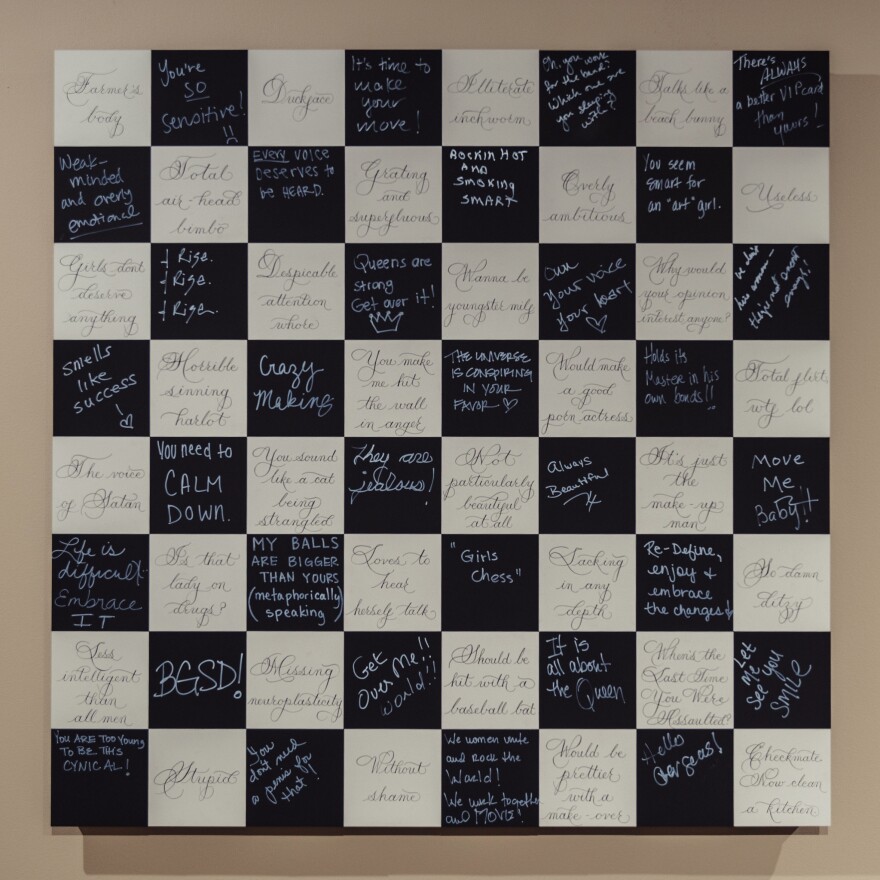 Farmer's
body
You're
SO
sensitive!
!!
Duckface
It's time to
make
your
move!
Illiterate
inchworm
Oh, you work
for the band?
Which one are
you sleeping
with?
Talks like a
beach bunny
There's
ALWAYS
a better VIP card
than
yours!
Weak-
minded
and overly
emotional
Total
air-head
bimbo
EVERY VOICE
DESERVES TO
be HEARD.
Grating
and
superfluous
ROCKIN HOT
AND
SMOKING
SMART
Overly
ambitious
You seem
smart for
an "art" girl.
Useless
Girls dont
deserve
anything
I Rise.
I Rise.
I Rise.
Despicable
attention
whore
Queens are
strong
Get over it!
Wanna be
youngster milf
own
your voice
your heart
Why would
your opinion
interest anyone?
they're not around
enough!!
Smells
like
success
!
Horrible
sinning
harlot
Crazy
Making
You make
me hit
the wall
in anger
THE UNIVERSE
IS CONSPIRING
IN YOUR
FAVOR
Would make
a good
porn actress
Holds its
Master in his
own bonds!!
Total flirt
wtf lol
The voice
of Satan
You need to
CALM
DOWN.
You sound
like a cat
being
strangled
they are
jealous!
Not
particularly
beautiful
at all
Always
Beautiful
It's just
the
make-up
man
Move
Me,
Baby!!
Life is
difficult-
Embrace
IT
Is that
lady on
drugs?
MY BALLS
ARE BIGGER
THAN YOURS
(metaphorically
speaking)
Loves to
hear
herself talk
"Girls
Chess"
Lacking
in any
depth
Re-Define,
enjoy +
embrace
the changes
So damn
ditzy
Less
intelligent
than
all men
BGSD!
Missing
neuroplasticity
Get
Over Me!!
World!!
Should be
hit with a
baseball bat
It is
all about
the Queen
When's the
Last Time
You Were
Assaulted?
Let
Me
see you
Smile
YOU ARE TOO YOUNG
TO BE THIS
CYNICAL!
Stupid
You
don't need
a penis for
that!
Without
shame
We women unite
and Rock the
World!
We work together
and MOVE!
Would be
prettier
with a
make-over
Hello
Gorgeous!
Checkmate
Now clean
a kitchen